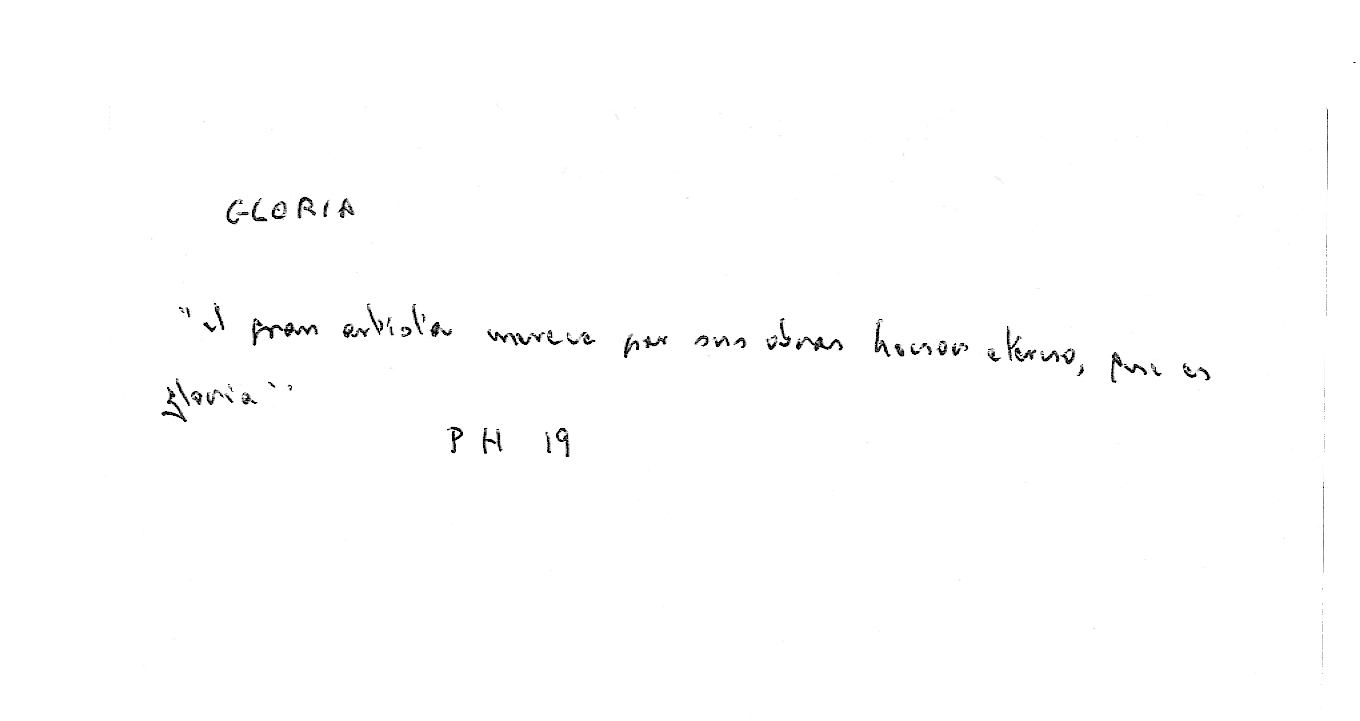 GLORIA
"el gran artista merece por sus obras honor eterno, que es
gloria"
PH 19